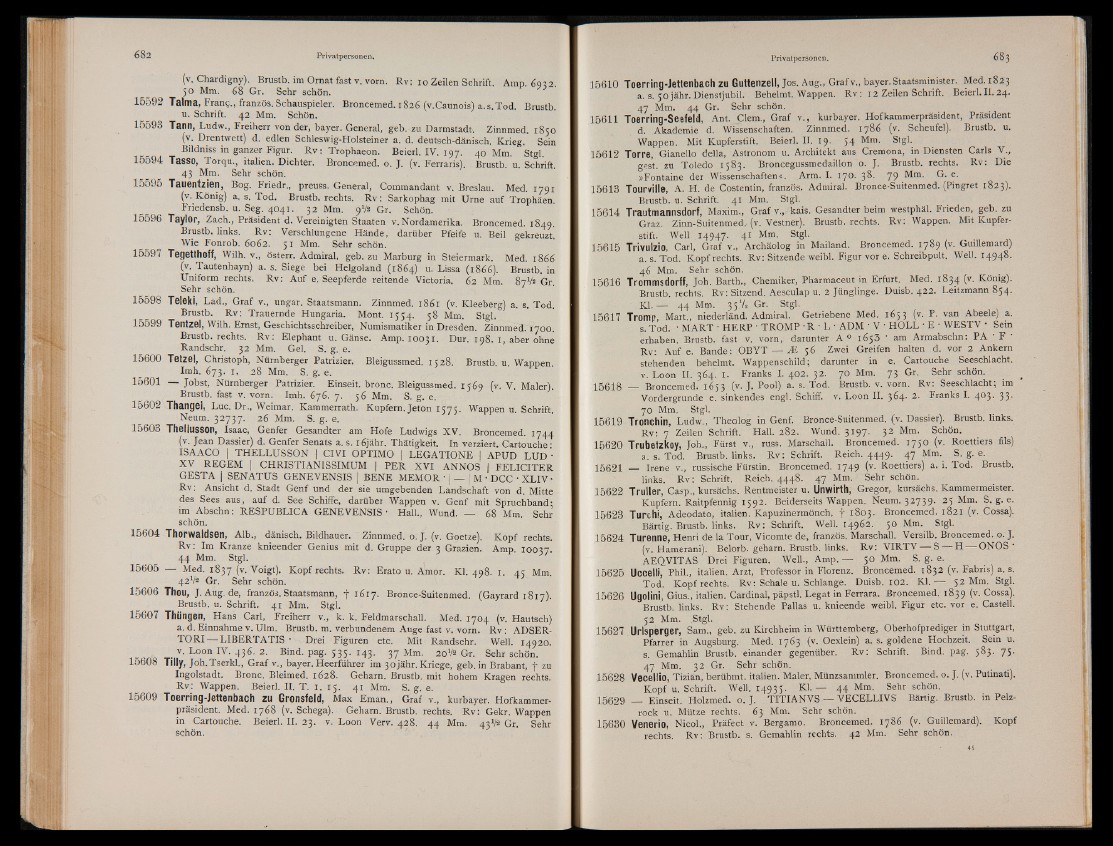 682
Privatpersonen.
(v. Chardigny). Brustb. im Ornat fast v. vorn. Rv: 10 Zeilen Schrift. Amp. 6932.
50 Mm. 68 Gr. Sehr schön.
15592 Talma, Franç., französ. Schauspieler. Broncemed. 1826 (v. Caunois) a. s. Tod. Brustb.
u. Schrift. 42 Mm. Schön.
15593 Tann, Ludw., Freiherr von der, bayer. General, geb. zu Darmstadt. Zinnmed. 1850
(v. Drentwett) d. edlen Schleswig-Holsteiner a. d. deutsch-dänisch. Krieg. Sein
Bildniss in ganzer Figur. Rv: Trophaeon. Beierl. IV. 197. 40 Mm. Stgl.
15594 Tasso, Torqu., italien. Dichter. Broncemed. o. J. (v. Ferraris). Brustb. u. Schrift.
43 Mm. Sehr schön.
15595 Tauentzien, Bog. Friedr., preuss. General, Commandant v. Breslau. Med. 1791
(v. König) a. s. Tod. Brustb. rechts. Rv: Sarkophag mit Urne auf Trophäen.
Friedensb. u. Seg. 4041. 32 Mm. 9½ Gr. Schön.
15596 Taylor, Zach., Präsident d. Vereinigten Staaten v. Nordamerika. Broncemed. 1849.
Brustb. links. Rv: Verschlungene Hände, darüber Pfeife u. Beil gekreuzt.
Wie Fonrob. 6062. 51 Mm. Sehr schön.
15597 Tegetthoff, Wilh. v., österr. Admiral, geb. zu Marburg in Steiermark. Med. 1866
(v. Tautenhayn) a. s. Siege bei Helgoland (1864) u. Lissa (1866). Brustb. in
Uniform rechts. Rv: Auf e. Seepferde reitende Victoria. 62 Mm. 87½ Gr.
Sehr schön.
15598 Teleki, Lad., Graf v., ungar. Staatsmann. Zinnmed. 1861 (v. Kleeberg) a. s. Tod.
Brustb. Rv: Trauernde Hungaria. Mont. 1554. 58 Mm. Stgl.
15599 Tentzel, Wilh. Ernst, Geschichtsschreiber, Numismatiker in Dresden. Zinnmed. 1700.
Brustb. rechts. Rv: Elephant u. Gänse. Amp. 10031. Dur. 198. 1, aber ohne
Randschr. 32 Mm. Gel. S. g. e.
15600 Tetzel, Christoph, Nürnberger Patrizier. Bleigussmed. 1528. Brustb. u. Wappen.
Imh. 673. 1. 28 Mm. S. g. e.
15601 — Jobst, Nürnberger Patrizier. Einseit. bronc. Bleigussmed. 1569 (v. V. Maler).
Brustb. fast v. vorn. Imh. 676. 7. 56 Mm. S. g. e.
15602 Thangel, Luc. Dr., Weimar. Kammerrath. Kupfern. Jeton 1575. Wappen u. Schrift.
Neum. 32737. 26 Mm. S. g. e.
15603 Thellusson, Isaac, Genfer Gesandter am Hofe Ludwigs XV. Broncemed. 1744
(v. Jean Dassier) d. Genfer Senats a. s. 16jähr. Thätigkeit. In verziert. Cartouche:
ISAACO | THELLUSSON | CIVI OPTIMO | LEGATIONE | APUD LUD ·
XV REGEM | CHRISTIANISSIMUM | PER XVI ANNOS | FELICITER
GESTA | SENATUS GENEVENSIS | BENE MEMOR · | — | M · DCC · XLIV ·
Rv: Ansicht d. Stadt Genf und der sie umgebenden Landschaft von d. Mitte
des Sees aus, auf d. See Schiffe, darüber Wappen v. Genf mit Spruchband;
im Abschn: RESPUBLICA GENEVENSIS · Hall., Wund. — 68 Mm. Sehr
schön.
15604 Thorwaldsen, Alb., dänisch. Bildhauer. Zinnmed. o. J. (v. Goetze). Kopf rechts.
Rv: Im Kranze knieender Genius mit d. Gruppe der 3 Grazien. Amp. 10037.
44 Mm. Stgl.
15605 — Med. 1837 (v. Voigt). Kopf rechts. Rv: Erato u. Amor. Kl. 498. 1. 45 Mm.
42½ Gr. Sehr schön.
15606 Thou, J. Aug. de, französ. Staatsmann, † 1617. Bronce-Suitenmed. (Gayrard 1817).
Brustb. u. Schrift. 41 Mm. Stgl.
15607 Thüngen, Hans Carl, Freiherr v., k. k. Feldmarschall. Med. 1704 (v. Hautsch)
a. d. Einnahme v. Ulm. Brustb. m. verbundenem Auge fast v. vorn. Rv: ADSER-
TORI — LIBERTATIS · Drei Figuren etc. Mit Randschr. Well. 14920.
v. Loon IV. 436. 2. Bind. pag. 535. 143. 37 Mm. 20½ Gr. Sehr schön.
15608 Tilly, Joh. Tserkl., Graf v., bayer. Heerführer im 30jähr. Kriege, geb. in Brabant, † zu
Ingolstadt. Bronc. Bleimed. 1628. Geharn. Brustb. mit hohem Kragen rechts.
Rv: Wappen. Beierl. II. T. 1. 15. 41 Mm. S. g. e.
15609 Toerring-Jettenbach zu Gronsfeld, Max Eman., Graf v., kurbayer. Hofkammer-
präsident. Med. 1768 (v. Schega). Geharn. Brustb. rechts. Rv: Gekr. Wappen
in Cartouche. Beierl. II. 23. v. Loon Verv. 428. 44 Mm. 43½ Gr. Sehr
schön.
Privatpersonen.
683
15610 Toerring-Jettenbach zu Guttenzell, Jos. Aug., Graf v., bayer. Staatsminister. Med. 1823
a. s. 50jähr. Dienstjubil. Behelmt. Wappen. Rv: 12 Zeilen Schrift. Beierl. II. 24.
47 Mm. 44 Gr. Sehr schön.
15611 Toerring-Seefeld, Ant. Clem., Graf v., kurbayer. Hofkammerpräsident, Präsident
d. Akademie d. Wissenschaften. Zinnmed. 1786 (v. Scheufel). Brustb. u.
Wappen. Mit Kupferstift. Beierl. II. 19. 54 Mm. Stgl.
15612 Torre, Gianello della, Astronom u. Architekt aus Cremona, in Diensten Carls V.,
gest. zu Toledo 1583. Broncegussmedaillon o. J. Brustb. rechts. Rv: Die
»Fontaine der Wissenschaften«. Arm. I. 170. 38. 79 Mm. G. e.
15613 Tourville, A. H. de Costentin, französ. Admiral. Bronce-Suitenmed. (Pingret 1823).
Brustb. u. Schrift. 41 Mm. Stgl.
15614 Trautmannsdorf, Maxim., Graf v., kais. Gesandter beim westphäl. Frieden, geb. zu
Graz. Zinn-Suitenmed. (v. Vestner). Brustb. rechts. Rv: Wappen. Mit Kupfer-
stift. Well 14947. 41 Mm. Stgl.
15615 Trivulzio, Carl, Graf v., Archäolog in Mailand. Broncemed. 1789 (v. Guillemard)
a. s. Tod. Kopf rechts. Rv: Sitzende weibl. Figur vor e. Schreibpult. Well. 14948.
46 Mm. Sehr schön.
15616 Trommsdorff, Joh. Barth., Chemiker, Pharmaceut in Erfurt. Med. 1834 (v. König).
Brustb. rechts. Rv: Sitzend. Aesculap u. 2 Jünglinge. Duisb. 422. Leitzmann 854.
Kl. — 44 Mm. 35¼ Gr. Stgl.
15617 Tromp, Mart., niederländ. Admiral. Getriebene Med. 1653 (v. P. van Abeele) a.
s. Tod. · MART · HERP · TROMP · R · L · ADM · V · HOLL · E · WESTV · Sein
erhaben. Brustb. fast v. vorn, darunter Aº 1653 · am Armabschn: PA · F ·
Rv: Auf e. Bande: OBYT — Æ 56 Zwei Greifen halten d. vor 2 Ankern
stehenden behelmt. Wappenschild; darunter in e. Cartouche Seeschlacht.
v. Loon II. 364. 1. Franks I. 402. 32. 70 Mm. 73 Gr. Sehr schön.
15618 — Broncemed. 1653 (v. J. Pool) a. s. Tod. Brustb. v. vorn. Rv: Seeschlacht; im
Vordergrunde e. sinkendes engl. Schiff. v. Loon II. 364. 2. Franks I. 403. 33.
70 Mm. Stgl.
15619 Tronchin, Ludw., Theolog in Genf. Bronce-Suitenmed. (v. Dassier). Brustb. links.
Rv: 7 Zeilen Schrift. Hall. 282. Wund. 3197. 32 Mm. Schön.
15620 Trubetzkoy, Joh., Fürst v., russ. Marschall. Broncemed. 1750 (v. Roettiers fils)
a. s. Tod. Brustb. links. Rv: Schrift. Reich. 4449. 47 Mm. S. g. e.
15621 — Irene v., russische Fürstin. Broncemed. 1749 (v. Roettiers) a. i. Tod. Brustb.
links. Rv: Schrift. Reich. 4448. 47 Mm. Sehr schön.
15622 Truller, Casp., kursächs. Rentmeister u. Unwirth, Gregor, kursächs. Kammermeister.
Kupfern. Raitpfennig 1592. Beiderseits Wappen. Neum. 32739. 25 Mm. S. g. e.
15623 Turchi, Adeodato, italien. Kapuzinermönch, † 1803. Broncemed. 1821 (v. Cossa).
Bärtig. Brustb. links. Rv: Schrift. Well. 14962. 50 Mm. Stgl.
15624 Turenne, Henri de la Tour, Vicomte de, französ. Marschall. Versilb. Broncemed. o. J.
(v. Hamerani). Belorb. geharn. Brustb. links. Rv: VIRTV — S — H — ONOS ·
AEQVITAS Drei Figuren. Well., Amp. — 50 Mm. S. g. e.
15625 Uccelli, Phil., italien. Arzt, Professor in Florenz. Broncemed. 1832 (v. Fabris) a. s.
Tod. Kopf rechts. Rv: Schale u. Schlange. Duisb. 102. Kl. — 52 Mm. Stgl.
15626 Ugolini, Gius., italien. Cardinal, päpstl. Legat in Ferrara. Broncemed. 1839 (v. Cossa).
Brustb. links. Rv: Stehende Pallas u. knieende weibl. Figur etc. vor e. Castell.
52 Mm. Stgl.
15627 Urlsperger, Sam., geb. zu Kirchheim in Württemberg, Oberhofprediger in Stuttgart,
Pfarrer in Augsburg. Med. 1763 (v. Oexlein) a. s. goldene Hochzeit. Sein u.
s. Gemahlin Brustb. einander gegenüber. Rv: Schrift. Bind. pag. 583. 75.
47 Mm. 32 Gr. Sehr schön.
15628 Vecellio, Tizian, berühmt. italien. Maler, Münzsammler. Broncemed. o. J. (v. Putinati).
Kopf u. Schrift. Well. 14935. Kl. — 44 Mm. Sehr schön.
15629 — Einseit. Holzmed. o. J. TITIANVS — VECELLIVS Bärtig. Brustb. in Pelz-
rock u. Mütze rechts. 63 Mm. Sehr schön.
15630 Venerio, Nicol., Präfect v. Bergamo. Broncemed. 1786 (v. Guillemard). Kopf
rechts. Rv: Brustb. s. Gemahlin rechts. 42 Mm. Sehr schön.